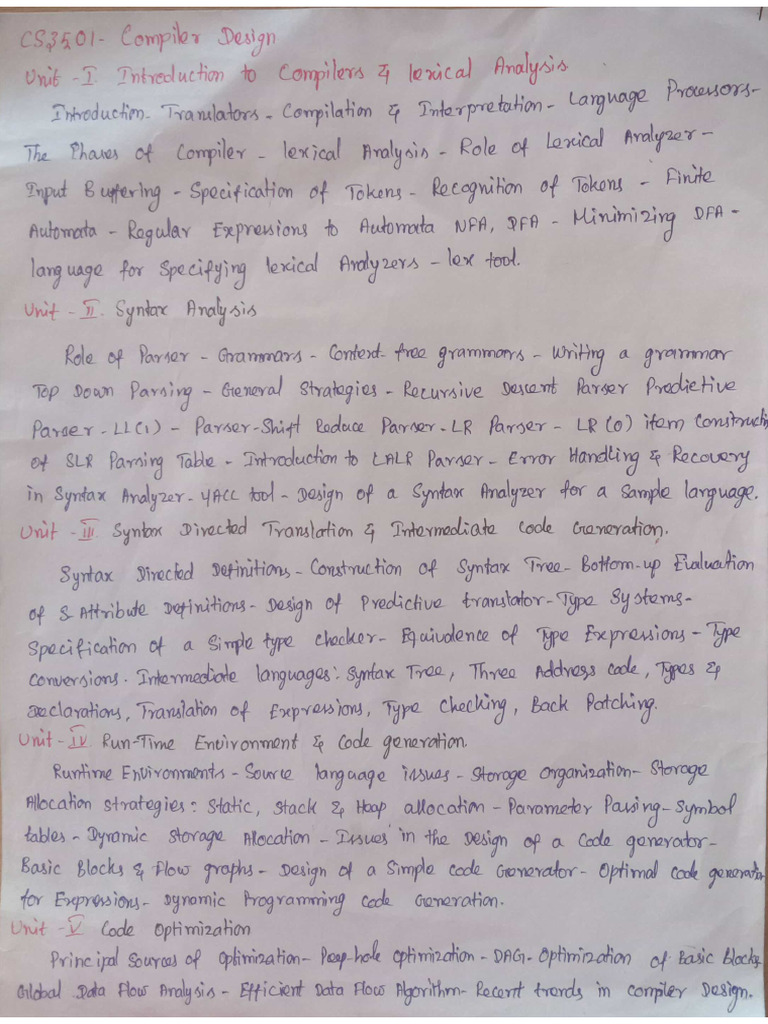 1
CS3501- Compiler Design
Unit -I. Introduction to Compilers & lexical Analysis.
Introduction- Translators - Compilation & Interpretation - Language Processors-
The Phases of Compiler - lexical Analysis - Role of Lexical Analyzer-
Input Buffering - Specification of Tokens - Recognition of Tokens - Finite
Automata - Regular Expressions to Automata NFA, DFA - Minimizing DFA -
language for Specifying lexical Analyzers - lex tool.
Unit - II. Syntax Analysis
Role of Parser - Grammars - Context-free grammars - Writing a grammar
Top Down Parsing - General Strategies - Recursive Descent Parser Predictive
Parser - LL(1) - Parser-Shift Reduce Parser-LR Parser - LR (0) item Constructi
of SLR Parsing Table - Introduction to LALR Parser - Error Handling & Recovery
in Syntax Analyzer-YACC tool - Design of a Syntax Analyzer for a Sample language.
Unit -III Syntax Directed Translation & Intermediate Code Generation.
Syntax Directed Definitions - Construction of Syntax Tree - Bottom-up Evaluation
of S Attribute Definitions - Design of Predictive translator-Type Systems-
Specification of a Simple type checker- Equivalence of Type Expressions - Type
Conversions. Intermediate languages: Syntax Tree, Three Address code, Types &
Declarations, Translation of Expressions, Type Checking, Back Patching.
Unit-IV Run-Time Environment & Code generation.
Runtime Environments - Source language issues - Storage Organization- Storage
Allocation Strategies: Static, Stack & Heap allocation - Parameter Passing-Symbol
tables - Dynamic Storage Allocation - Issues in the Design of a Code generator-
Basic Blocks & Flow graphs - Design of a Simple code Generator- Optimal Code generator
for Expressions- Dynamic Programming code Generation.
Unit -V Code Optimization
Principal Sources of Optimization- Peep-hole optimization - DAG- Optimization of Basic Blocks-
Global Data Flow Analysis - Efficient Data Flow Algorithm- Recent trends in compiler Design.